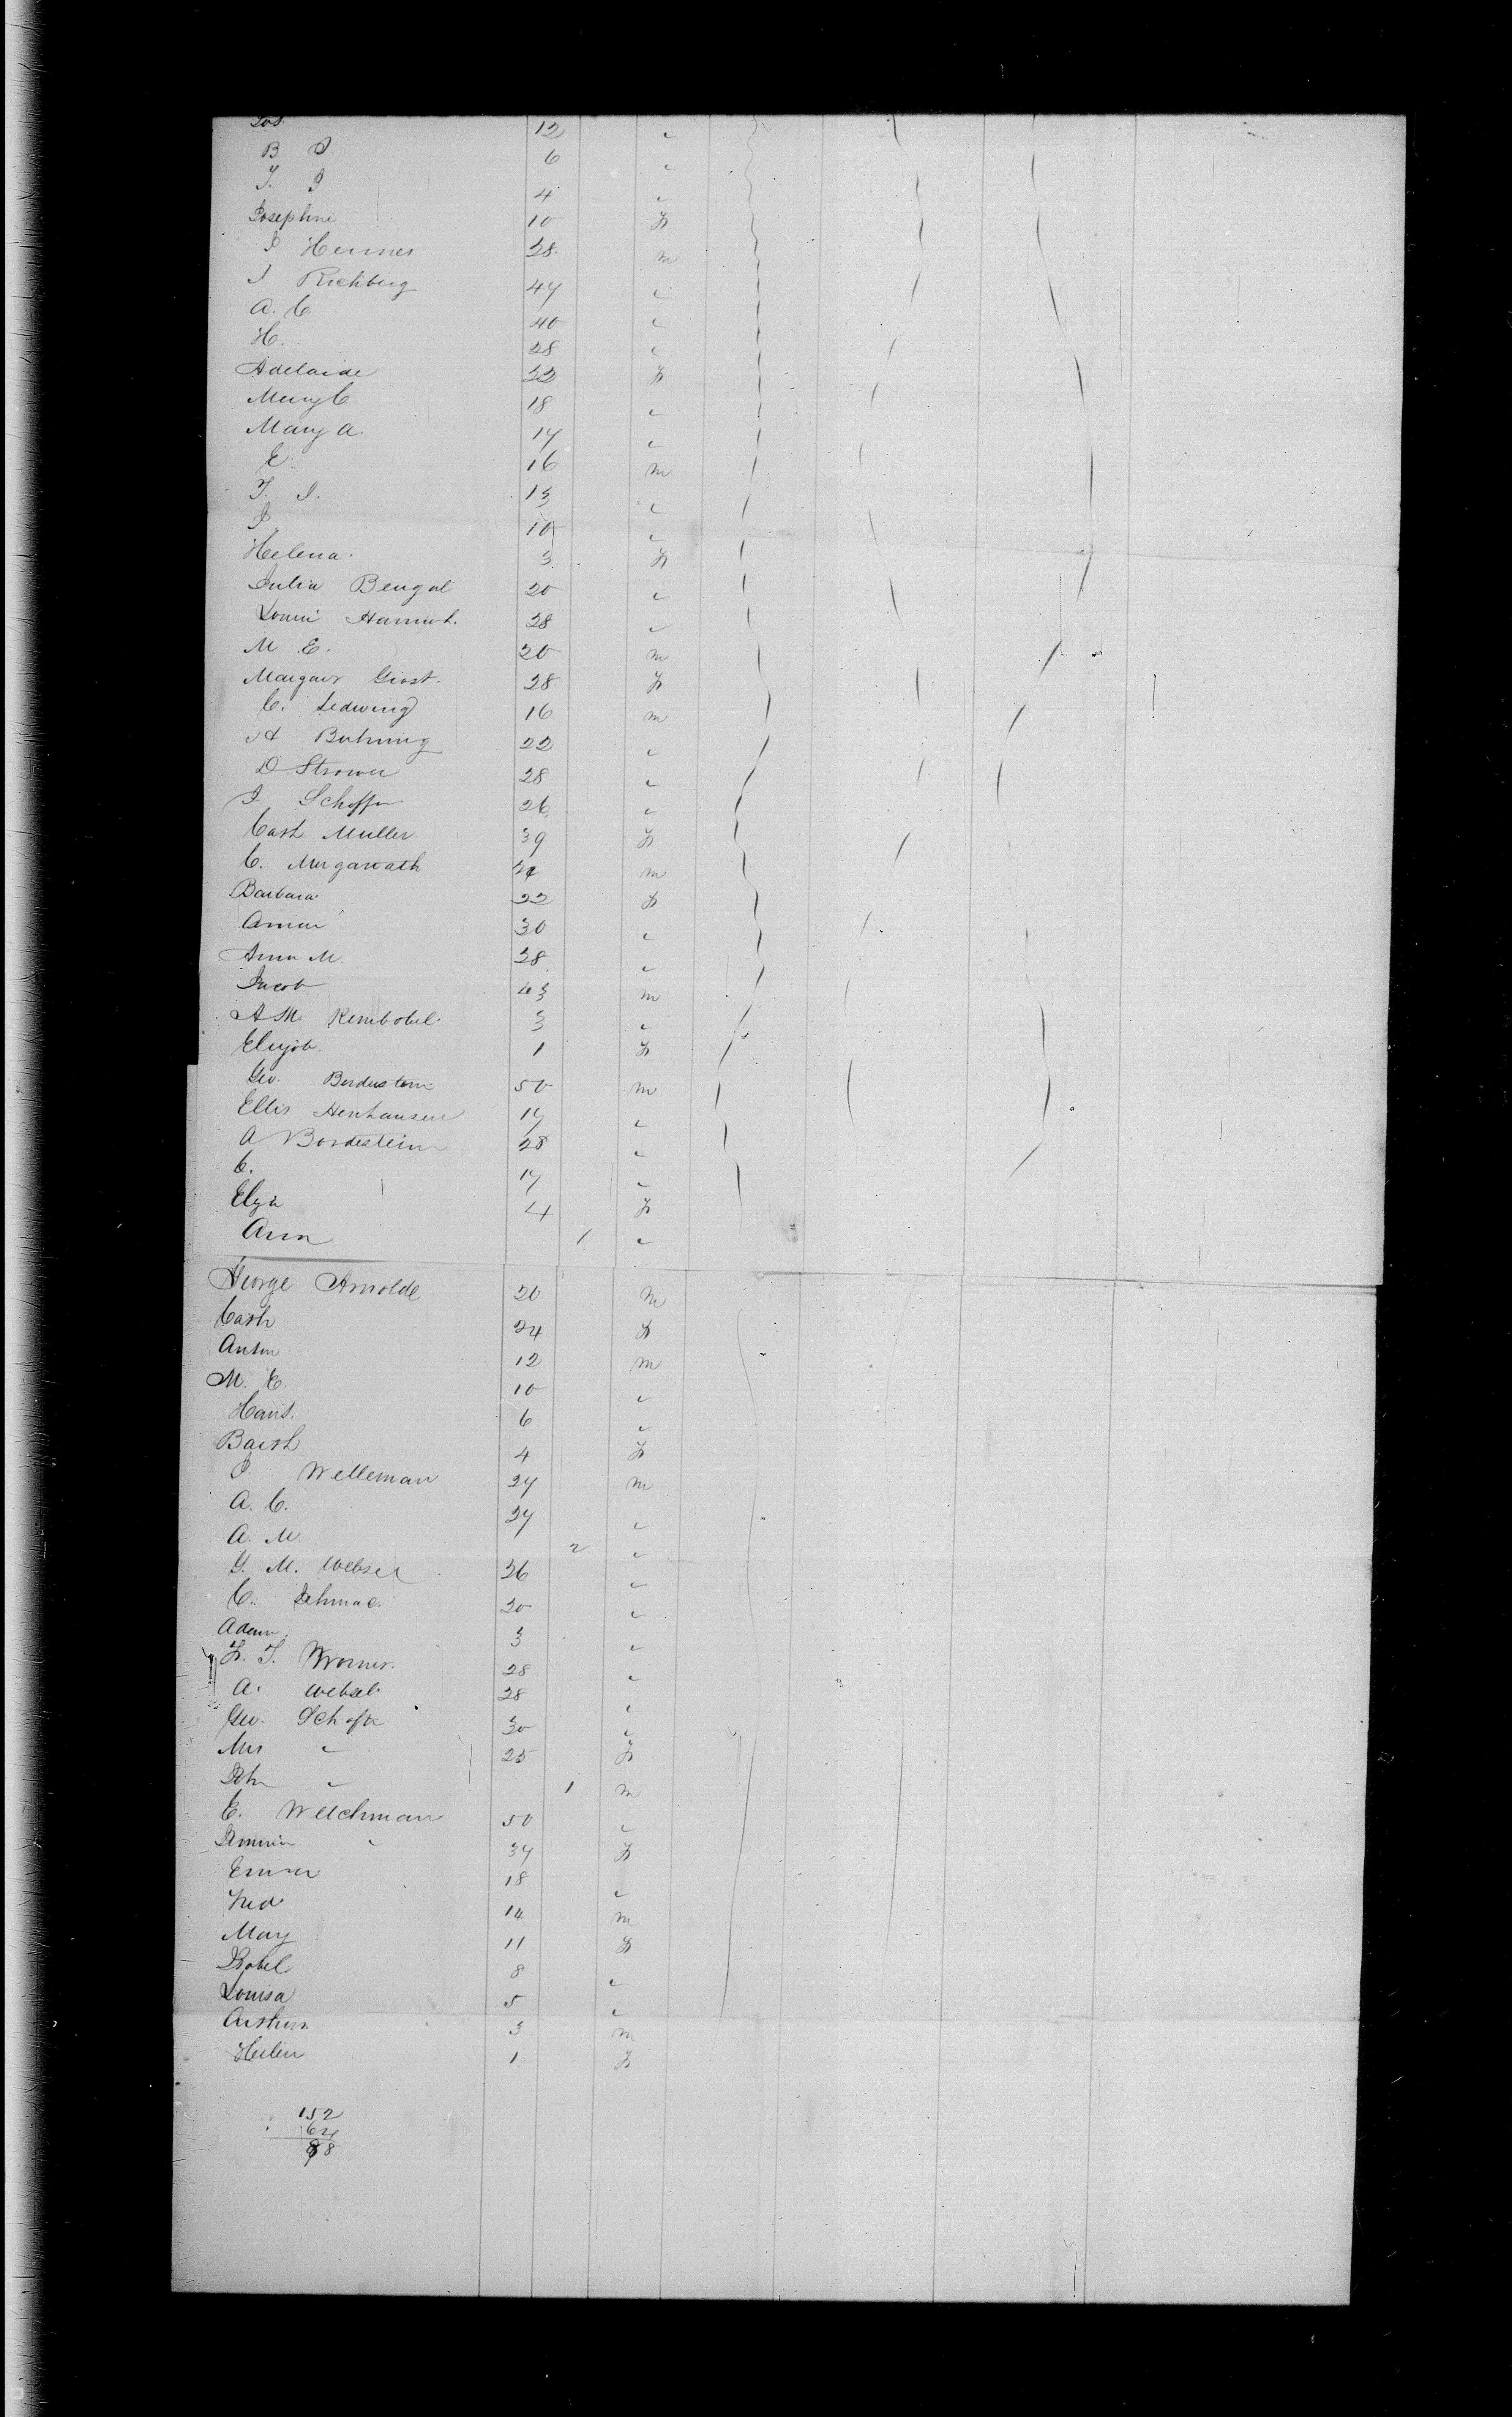 12 "
B J 6 "
T. J 4 "
Josephine 10 F
J Hermes 38 m
J Richberg 47 "
A. C. 40 "
H. 28 "
Adelaide 22 F
Mary C 18 "
Mary A. 17 "
E. 16 m
T. J. 13 "
J. 10 "
Helena 3 F
Julia Bengal 20 "
28 "
M E. 20 m
Margaret Grost. 28 F
C. Ledwing 16 m
A Buhning 22 "
D Strower 28 "
J Schaffer 26 "
Cath Muller 39 F
C. m
Barbara 22 F
30 "
Anna M. 28 "
Jacob 43 m
A M. Rembobel 3 "
1 F
Geo. Bordestein 50 m
Ellis Henhausen 17 "
A Bordestein 28 "
C. 17 "
Eliza 4 F
Ann 1 "
George Arnolde 20 m
Cath 24 F
Anton 12 m
M. C. 10 "
Hans. 6 "
4 F
J. Willeman 27 m
A. C. 27 "
A. M 2 "
G. M. Websel 26 "
C. 20 "
Adam 3 "
F. T. Wormer. 28 "
A. Websel 28 "
Geo. Schafer 30 "
Mrs " 25 F
John " 1 m
C. Welchman 50 "
" 37 F
Emma 18 "
Fred 14 m
May 11 F
Isobel 8 "
Louisa 5 "
Arthur 3 m
Helen 1 F
152
64
88